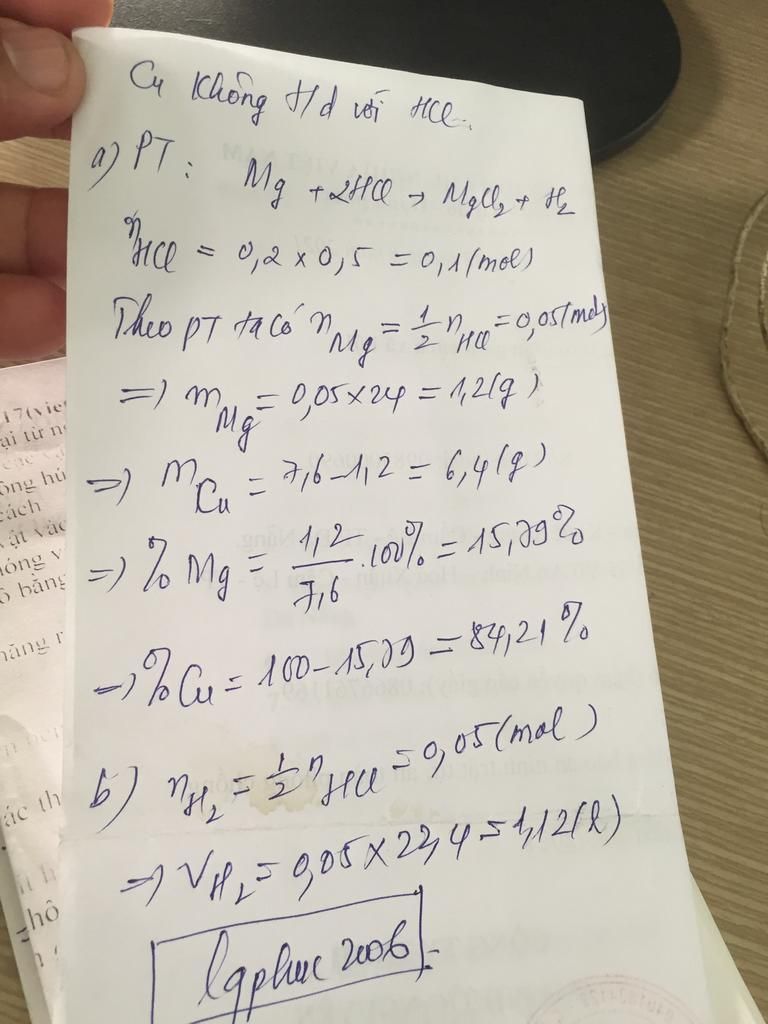 Cu không t/d với HCl
a) PT: Mg + 2HCl → MgCl2 + H2
nHCl = 0,2 x 0,5 = 0,1 (mol)
Theo PT ta có nMg = 1/2 nHCl = 0,05 (mol)
=> mMg = 0,05 x 24 = 1,2 (g)
=> mCu = 7,6 - 1,2 = 6,4 (g)
=> % Mg = 1,2/7,6 . 100% = 15,79%
=> % Cu = 100 - 15,79 = 84,21%
b) nH2 = 1/2 nHCl = 0,05 (mol)
=> VH2 = 0,05 x 22,4 = 1,12 (l)
lqphuc2006